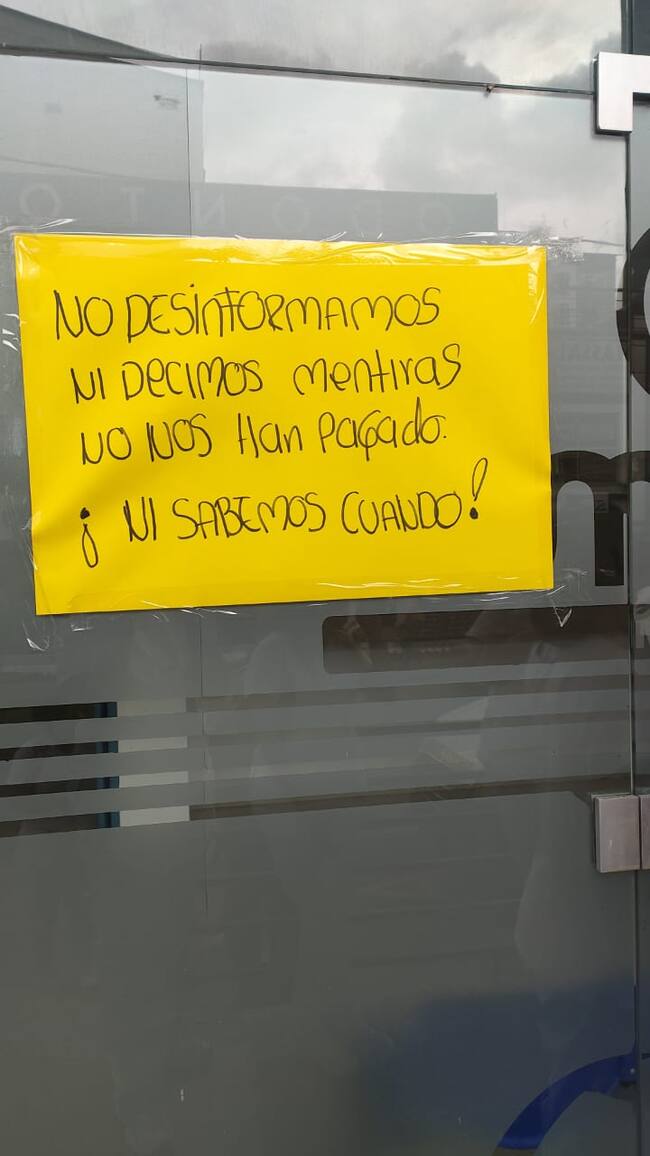 NO DESINFORMAMOS
NI DECIMOS mentiras
NO NOS Han Pagado.
¡ NI SABEMOS CUANDO!